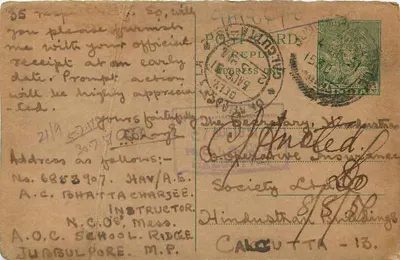 35 So, will
you please furnish
me with your official
receipt at an early
date. Prompt action
will be highly apprecia
-ted.
Yours faithfully
Address as follows:-
No. 6853907. Hav/A.E.
A.C. BHATTACHARJEE.
INSTRUCTOR
N.C.Os. Mess.
A.O.C. SCHOOL. RIDGE
JUBBULPORE. M.P.
21/9
POST CARD
REPLY
ADDRESS ONLY
INDIA
The Secretary, Hindusthan
Co-operative Insurance
Society Ltd
Hindusthan Buildings
CALCUTTA - 13.
Noted